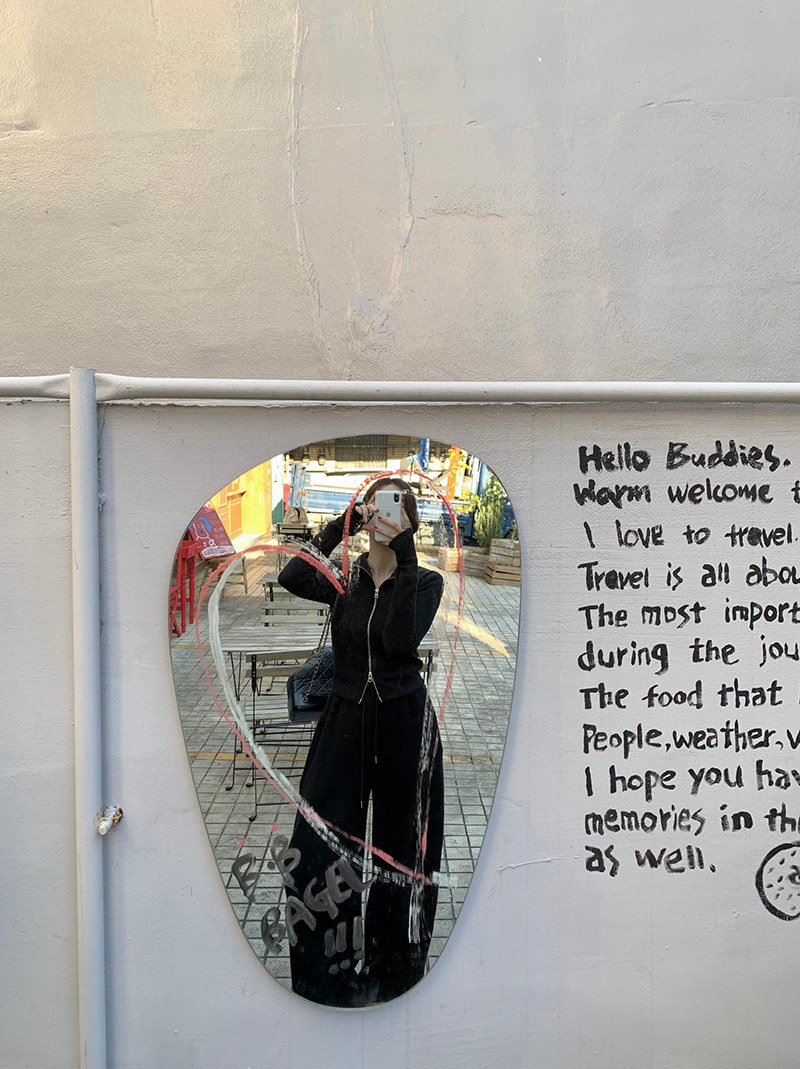 B.B
BAGEL
!!!
Hello Buddies.
Warm welcome t
I love to travel.
Travel is all abou
The most import
during the jou
The food that
People, weather, v
I hope you hav
memories in th
as well.